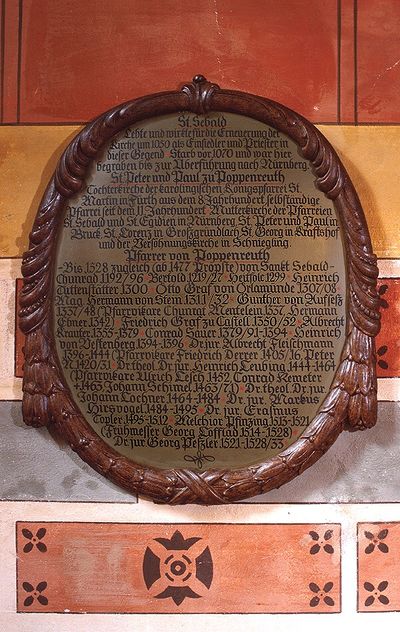 St. Sebald
Lebte und wirkte für die Erneuerung der
Kirche um 1050 als Einsiedler und Priester in
dieser Gegend. Starb vor 1070 und war hier
begraben bis zur Überführung nach Nürnberg.
St. Peter und Paul zu Poppenreuth
Tochterkirche der karolingischen Königspfarrei St.
Martin in Fürth aus dem 8. Jahrhundert, selbständige
Pfarrei seit dem 11. Jahrhundert. Mutterkirche der Pfarreien
St. Sebald und St. Egidien in Nürnberg, St. Peter und Paul in
Bruck, St. Lorenz in Großgründlach, St. Georg in Kraftshof
und der Versöhnungskirche in Schniegling.
Pfarrer von Poppenreuth
Bis 1528 zugleich (ab 1477 Pröpste) von Sankt Sebald
Conrad 1192/96 Berthold 1219/27 Heinrich
1300 Otto Graf von Orlamünde 1307/08
Mag. Hermann von Stein 1311/32 Günther von Aufseß
1337/48 (Pfarrvikare Chunrat 1337, Hermann
Ebner 1342) Friedrich Graf zu Castell 1350/52 Albrecht
1355-1379 Conrad Sauer 1379/91-1394 Heinrich
von Vestenberg 1394-1396 Dr. jur. Albrecht Fleischmann
1396-1444 (Pfarrvikare Friedrich Derrer 1405/16, Peter
1420/31) Dr. theol. Dr. jur. Heinrich Leubing 1444-1464
(Pfarrvikare Ulrich 1452, Conrad
1463, Johann 1463/) Dr. theol. Dr. jur.
Johann Lochner 1464-1484 Dr. jur. Markus
Hirsvogel 1484-1495 Dr. jur. Erasmus
Topler 1495-1512 Melchior Pfinzing 1513-1521
(Frühmesser Georg 1514-1528)
Dr. jur. Georg Peßler 1521-1528/33